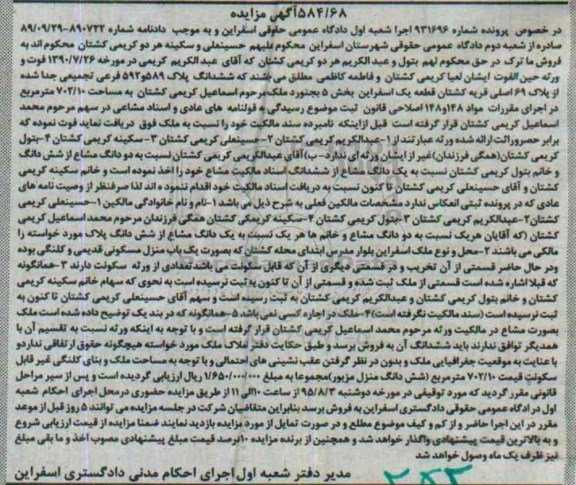 ۵۸۴/۶۸آگهی مزایده
در خصوص پرونده شماره ۹۳۱۶۹۶ اجرا شعبه اول دادگاه عمومی حقوقی اسفراین و به موجب دادنامه شماره ۸۹۰۷۲۲-۸۹/۰۹/۲۹
صادره از شعبه دوم دادگاه عمومی حقوقی شهرستان اسفراین محکوم علیهم حسینعلی و سکینه هر دو کریمی کشتان محکوم اند به
فروش ما ترک در حق محکوم لهم بتول و عبدالکریم هر دو کریمی کشتان که آقای عبدالکریم کریمی در مورخه ۱۳۹۰/۷/۲۶ فوت و
ورثه حین الفوت ایشان لعیا کریمی کشتان و فاطمه کاظمی مطلق می باشند که ششدانگ پلاک ۵۸۹و۵۹۲ فرعی تجمیعی جدا شده
از پلاک ۶۹ اصلی قریه کشتان قطعه یک اسفراین بخش ۵ بجنورد ملک مرحوم اسماعیل کریمی کشتان به مساحت ۷۰۲/۱۰ مترمربع
در اجرای مقررات مواد ۱۴۸و۱۴۸ اصلاحی قانون ثبت موضوع رسیدگی به قولنامه های عادی و اسناد مشاعی در سهم مرحوم محمد
اسماعیل کریمی کشتان قرار گرفته است قبل ازاینکه نامبرده سند مالکیت خود را نسبت به ملک فوق دریافت نماید فوت نموده که
برابر حصروراثت ارائه شده ورثه عبارتند از ۱-عبدالکریم کریمی کشتان ۲-حسینعلی کریمی کشتان ۳-سکینه کریمی کشتان ۴-بتول
کریمی کشتان(همگی فرزندان)غیر از ایشان ورثه ای ندارد- ب) آقای عبدالکریم کریمی کشتان نسبت به دو دانگ مشاع از شش دانگ
و خانم بتول کریمی کشتان نسبت به یک دانگ مشاع از ششدانگ اسناد مالکیت مشاع خود را اخذ نموده است و خانم سکینه کریمی
کشتان و آقای حسینعلی کریمی کشتان تا کنون نسبت به دریافت اسناد مالکیت خود اقدام ننموده اند لذا صرفنظر از وصیت نامه های
عادی که در پرونده ثبتی انعکاس ندارد مشخصات مالکین فعلی به شرح ذیل می باشد ۱-نام و نام خانوادگی مالکین ۱-حسینعلی کریمی
کشتان۲-عبدالکریم کریمی کشتان ۳-بتول کریمی کشتان ۴-سکینه کریمی کشتان همگی فرزندان مرحوم محمد اسماعیل کریمی
کشتان (که آقایان هریک نسبت به دو دانگ مشاع و خانم ها هر یک نسبت به یک دانگ مشاع از شش دانگ پلاک مورد خواسته را
مالکی می باشند ۲-محل و نوع ملک اسفراین بلوار مدرس ابتدای محله کشتان که بصورت یک باب منزل مسکونی قدیمی و کلنگی بوده
ودر حال حاضر قسمتی از آن تخریب و در قسمتی دیگری از آن که قابل سکونت می باشد تعدادی از ورثه سکونت دارند ۳-همانگونه
که قبلا اشاره شده است قسمتی از ملک ثبت شده و قسمتی از آن تا کنون به ثبت نرسیده است به نحوی که سهام خانم سکینه کریمی
کشتان و خانم بتول کریمی کشتان و عبدالکریم کریمی کشتان به ثبت رسیده است و سهم آقای حسینعلی کریمی کشتان تا کنون به
ثبت نرسیده است (سند مالکیت نگرفته است)۴-ملک در اجاره کسی نمی باشد ۵-همانگونه که در بند یک توضیح داده شده است ملک
بصورت مشاع در مالکیت ورثه مرحوم محمد اسماعیل کریمی کشتان قرار گرفته است و با توجه به اینکه ورثه نسبت به تقسیم آن با
همدیگر توافق ندارند باید ششدانگ آن به فروش برسد و طبق حکایت دفتر املاک ملک مورد خواسته هیچگونه حقوق ارتفاقی نداردو
با عنایت به موقعیت جغرافیایی ملک و بدون در نظر گرفتن عقب نشینی های احتمالی و با توجه به مساحت ملک و بنای کلنگی غیر قابل
سکونت قیمت ۷۰۲/۱۰ مترمربع (شش دانگ منزل مزبور)مجموعا به مبلغ ۱/۶۵۰/۰۰۰/۰۰۰ ریال ارزیابی گردیده است و پس از سیر مراحل
قانونی مقرر گردید که مورد توقیفی در مورخه دوشنبه ۹۵/۸/۳ از ساعت ۱۰الی ۱۱ از طریق مزایده حضوری درمحل اجرای احکام شعبه
اول در ادگاه عمومی حقوقی دادگستری اسفراین به فروش برسد بنابراین متقاضیان شرکت در جلسه مزایده می توانند ۵ روز قبل از موعد
مقرر در این اجرا حاضر و از کم و کیف موضوع مطلع و در صورت تمایل از مورد مزایده بازدید نمایند ضمنا مزایده از قیمت ارزیابی شروع
و به بالاترین قیمت پیشنهادی واگذار خواهد شد و همچنین از برنده مزایده ۱۰درصد قیمت مبلغ پیشنهادی مصوب اخذ و ما بقی مبلغ
نیز ظرف یک ماه وصول خواهد شد
مدیر دفتر شعبه اول اجرای احکام مدنی دادگستری اسفراین